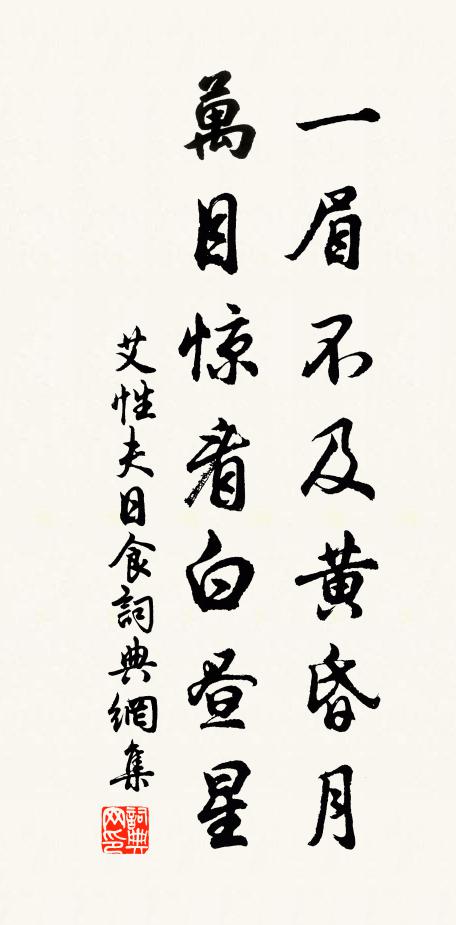 一眉不及黄昏月
萬目惊看白昼星
艾性夫日食詞典網集
詞典网印